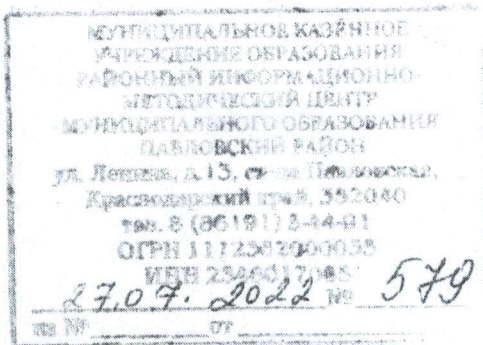 МУНИЦИПАЛЬНОЕ КАЗЁННОЕ
УЧРЕЖДЕНИЕ ОБРАЗОВАНИЯ
РАЙОННЫЙ ИНФОРМАЦИОННО-
МЕТОДИЧЕСКИЙ ЦЕНТР
МУНИЦИПАЛЬНОГО ОБРАЗОВАНИЯ
ПАВЛОВСКИЙ РАЙОН
ул. Ленина, д.13, ст-ца Павловская,
Краснодарский край, 352040
тел. 8 (86191)
ОГРН
ИНН
27.07.2022 № 579
на № от